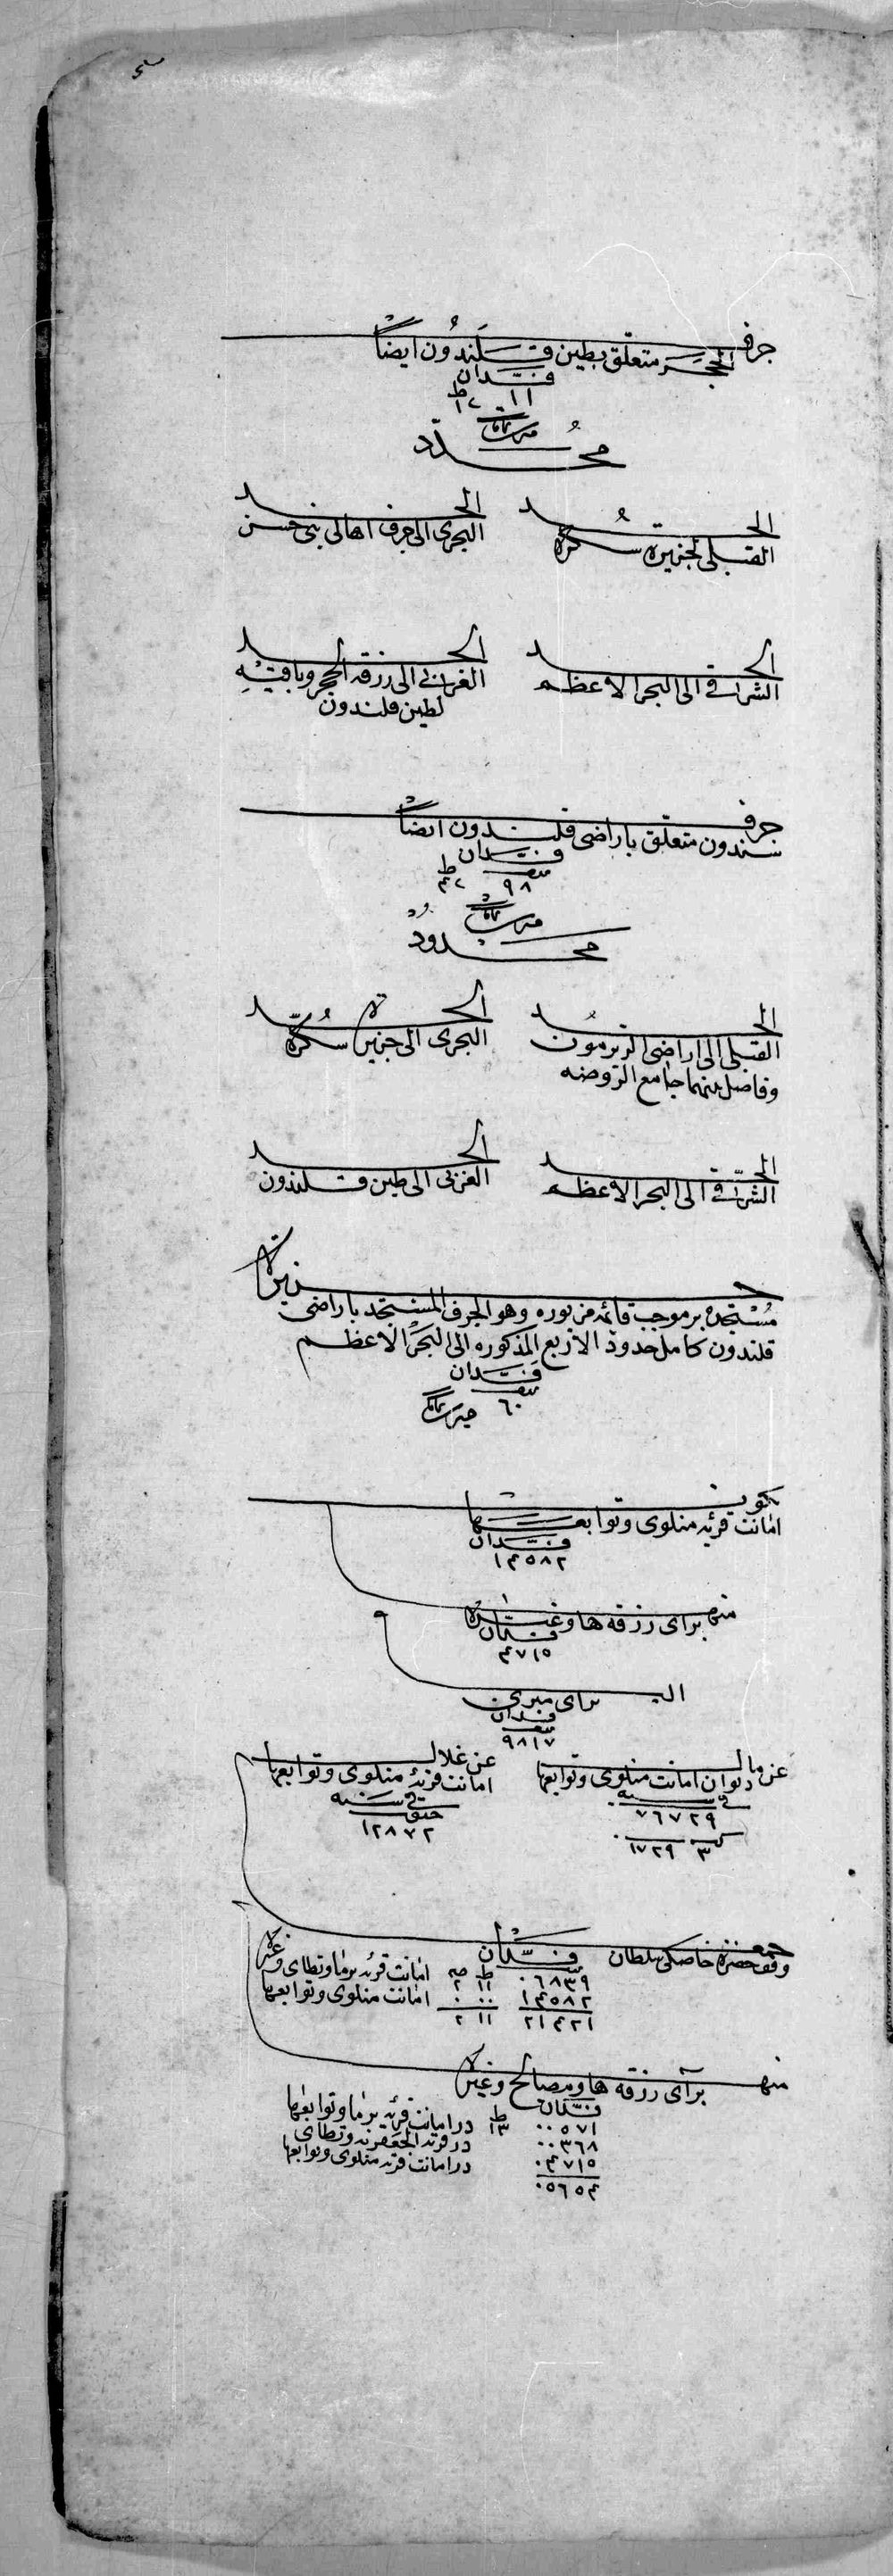 جرف
الحجر متعلق بطين قلندون ايضاً
فدان
١١
محدد
الحد
القبلى لجزيرة سكرة
الحد
البحرى الى جرف اهالى بنى حسن
الحد
الشراقى الى البحر الاعظم
الحد
الغربى الى رزقه الحجر وباقيه
لطين قلندون
جرف
سندون متعلق باراضى قلندون ايضاً
فدان
نصف
٩٨
محدود
الحد
القبلى الى اراضى الزيرمون
وفاصل بينهما جامع الروضه
الحد
البحرى الى جزيرة سكرة
الحد
الشراقى الى البحر الاعظم
الحد
الغربى الى طين قلندون
جزيرة
مستجده بر موجب قائمه مزبوره وهو الجرف المستجد باراضى
قلندون كامل حدود الاربع المذكوره الى البحر الاعظم
فدان
نصف
٦٠
يكون
امانت قريه منلوى وتوابعها
فدان
١٤٥٨٢
منها
براى رزقه ها وغيره
فدان
٤٧١٥
براى ميرى
فدان
نصف
٩٨١٧
عن مال
ديوان امانت منلوى وتوابعها
فى سنه
٧٦٧٢٩
٣ ١٧٢٩
عن غلال
امانت قريه منلوى وتوابعها
فى سنه
١٢٨٧٢
جمع
وقف حضرة خاصكى سلطان
فدان
٠٦٨٣٩ ١١ ٢ امانت قريه برما وتطاى وغيره
١٤٥٨٢ ٠٠ ٠ امانت منلوى وتوابعها
٢١٤٢١ ١١ ٢
منها
براى رزقه ها ومصالح وغيره
فدان
٠٠٥٧١ ١٣ در امانت قريه برما وتوابعها
٠٠٣٦٨ در قريه الجعفريه وتطاى
٠٤٧١٥ در امانت قريه منلوى وتوابعها
٠٥٦٥٤